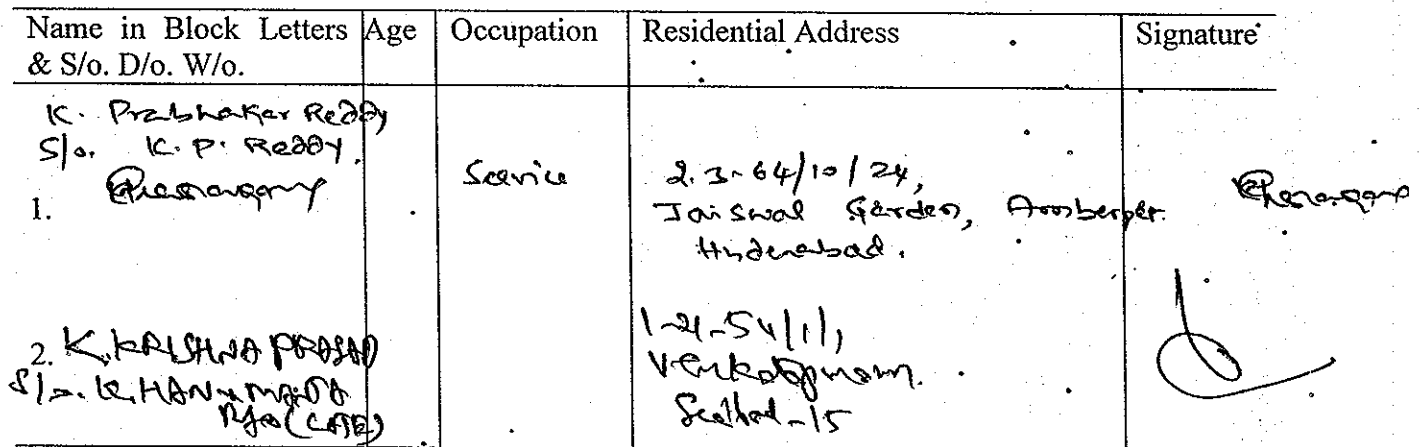 Name in Block Letters & S/o. D/o. W/o.
Age
Occupation
Residential Address
Signature
K. Prabhakar Reddy
S/o. K. P. Reddy.
1.
Service
2.3-64/10/24,
Jaiswal Garden, Amberpet.
Hyderabad.
2. K. KRISHNA PRASAD
S/o. K. HANUMANTA
(LATE)
Venkatapuram.
Sec'bad-15